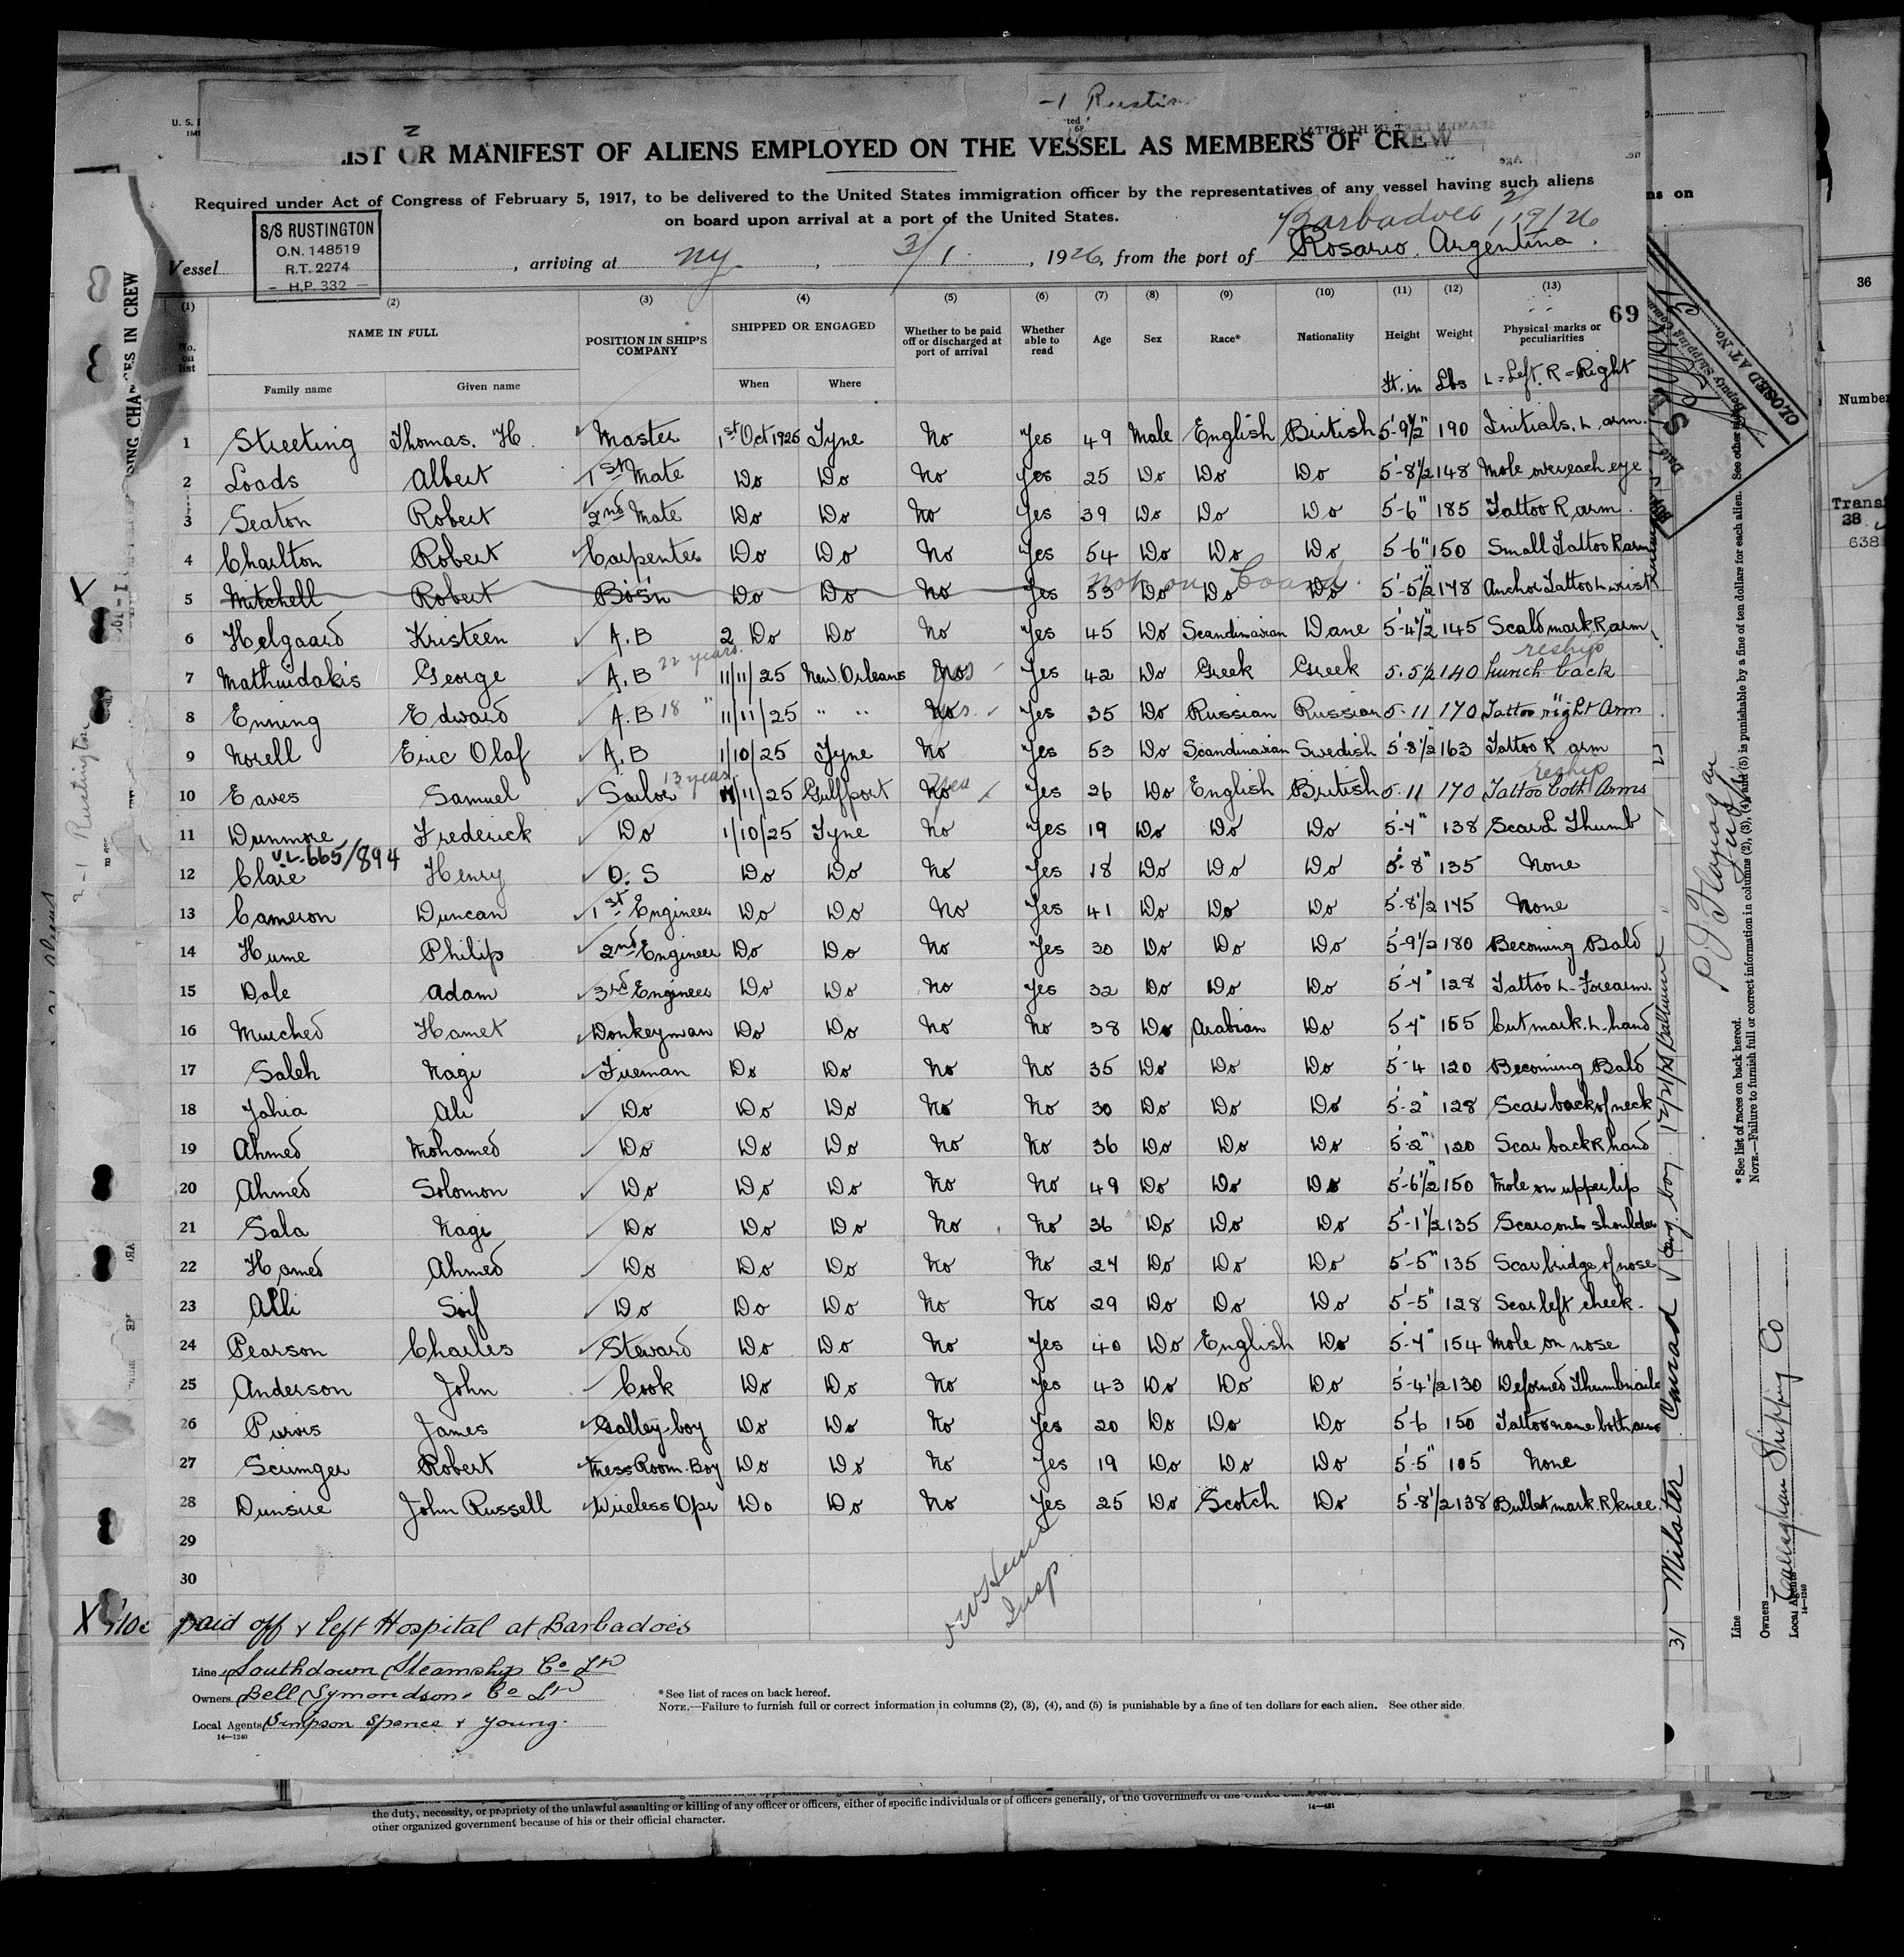 -1 Rustin
LIST OR MANIFEST OF ALIENS EMPLOYED ON THE VESSEL AS MEMBERS OF CREW
Required under Act of Congress of February 5, 1917, to be delivered to the United States immigration officer by the representatives of any vessel having such aliens
on board upon arrival at a port of the United States.
Barbadoes 2/19/26
S/S RUSTINGTON
O.N. 148519
R.T. 2274
H.P. 332
Vessel , arriving at NY , 3/1 , 1926, from the port of Rosario. Argentina.
69
(1) (2) (3) (4) (5) (6) (7) (8) (9) (10) (11) (12) (13)
No. on list NAME IN FULL POSITION IN SHIP'S COMPANY SHIPPED OR ENGAGED Whether to be paid off or discharged at port of arrival Whether able to read Age Sex Race* Nationality Height Weight Physical marks or peculiarities
Family name Given name When Where Ft. in Lbs L=Left. R=Right
1 Streeting Thomas. H. Master 1st Oct 1925 Tyne No Yes 49 Male English British 5-9½" 190 Initials. L arm.
2 Loads Albert 1st Mate Do Do No Yes 25 Do Do Do 5-8½ 148 Mole over each eye
3 Seaton Robert 2nd Mate Do Do No Yes 39 Do Do Do 5-6" 185 Tattoo R arm.
4 Charlton Robert Carpenter Do Do No Yes 54 Do Do Do 5-6" 150 Small Tattoo R arm
5 Mitchell Robert Bo'sn Do Do No Yes 53 Do Do Do 5-5½ 178 Anchor Tattoo L wrist
not on board.
6 Helgaard Kristeen A.B 2 Do Do No Yes 45 Do Scandinavian Dane 5-4½ 145 Scald mark R arm
7 Mathiudakis George A.B 22 years. 11/11/25 New Orleans Yes Yes 42 Do Greek Greek 5.5½ 140 hunch back
reship
8 Enning Edward A.B 18 " 11/11/25 " " Yes Yes 35 Do Russian Russian 5.11 170 Tattoo right Arm
"
9 Norell Eric Olaf A.B 1/10/25 Tyne No Yes 53 Do Scandinavian Swedish 5-8½ 163 Tattoo R arm
10 Eaves Samuel Sailor 13 years 11/11/25 Gulfport No Yes Yes 26 Do English British 5.11 170 Tattoo both Arms
reship
11 Dunmore Frederick Do 1/10/25 Tyne No Yes 19 Do Do Do 5-7" 138 Scar L Thumb
V.L. 665/894
12 Clare Henry O.S Do Do No Yes 18 Do Do Do 5-8" 135 None
13 Cameron Duncan 1st Engineer Do Do No Yes 41 Do Do Do 5-8½ 175 None
14 Hume Philip 2nd Engineer Do Do No Yes 30 Do Do Do 5-9½ 180 Becoming Bald
15 Dale Adam 3rd Engineer Do Do No Yes 32 Do Do Do 5-7" 128 Tattoo L-Forearm.
16 Murched Hamet Donkeyman Do Do No No 38 Do Arabian Do 5-7" 155 Cut mark. L. hand
17 Saleh Nagi Fireman Do Do No No 35 Do Do Do 5-4 120 Becoming Bald
18 Yahia Ali Do Do Do No No 30 Do Do Do 5-2" 128 Scar back of neck
19 Ahmed Mohamed Do Do Do No No 36 Do Do Do 5-2" 120 Scar back R hand
20 Ahmed Solomon Do Do Do No No 49 Do Do Do 5-6½ 150 Mole on upper lip
21 Sala Nagi Do Do Do No No 36 Do Do Do 5-1½ 135 Scars on shoulder
22 Hamed Ahmed Do Do Do No No 27 Do Do Do 5-5" 135 Scar bridge of nose
23 Alli Saif Do Do Do No No 29 Do Do Do 5-5" 128 Scar left cheek.
24 Pearson Charles Steward Do Do No Yes 40 Do English Do 5-7" 154 Mole on nose
25 Anderson John Cook Do Do No Yes 43 Do Do Do 5-4½ 130 Deformed Thumbnails
26 Purvis James Galley-boy Do Do No Yes 20 Do Do Do 5-6 150 Tattoo name both arms
27 Scrimger Robert Mess Room. Boy Do Do No Yes 19 Do Do Do 5-5" 105 None
28 Dunsire John Russell Wireless Opr Do Do No Yes 25 Do Scotch Do 5-8½ 138 Bullet mark. R knee
29
30
Insp
X paid off & left Hospital at Barbadoes
Line Southdown Steamship Co Ltd
Owners Bell Symondson & Co Ltd
Local Agents Simpson Spence & Young.
14—1240
*See list of races on back hereof.
NOTE.—Failure to furnish full or correct information in columns (2), (3), (4), and (5) is punishable by a fine of ten dollars for each alien. See other side.
the duty, necessity, or propriety of the unlawful assaulting or killing of any officer or officers, either of specific individuals or of officers generally, of the Government of the United
other organized government because of his or their official character.
CHANGES IN CREW
2-1 Rustington
31 Milster Conrad
CLOSED AT No.
Deputy Shipping
*See list of races on back hereof.
NOTE.—Failure to furnish full or correct information in columns (2), (3), (4), and (5) is punishable by a fine of ten dollars for each alien. See other side.
Line
Owners
Local Agents Callaghan Shipping Co
14—1240
ns on
36
Number
Trans
28
638